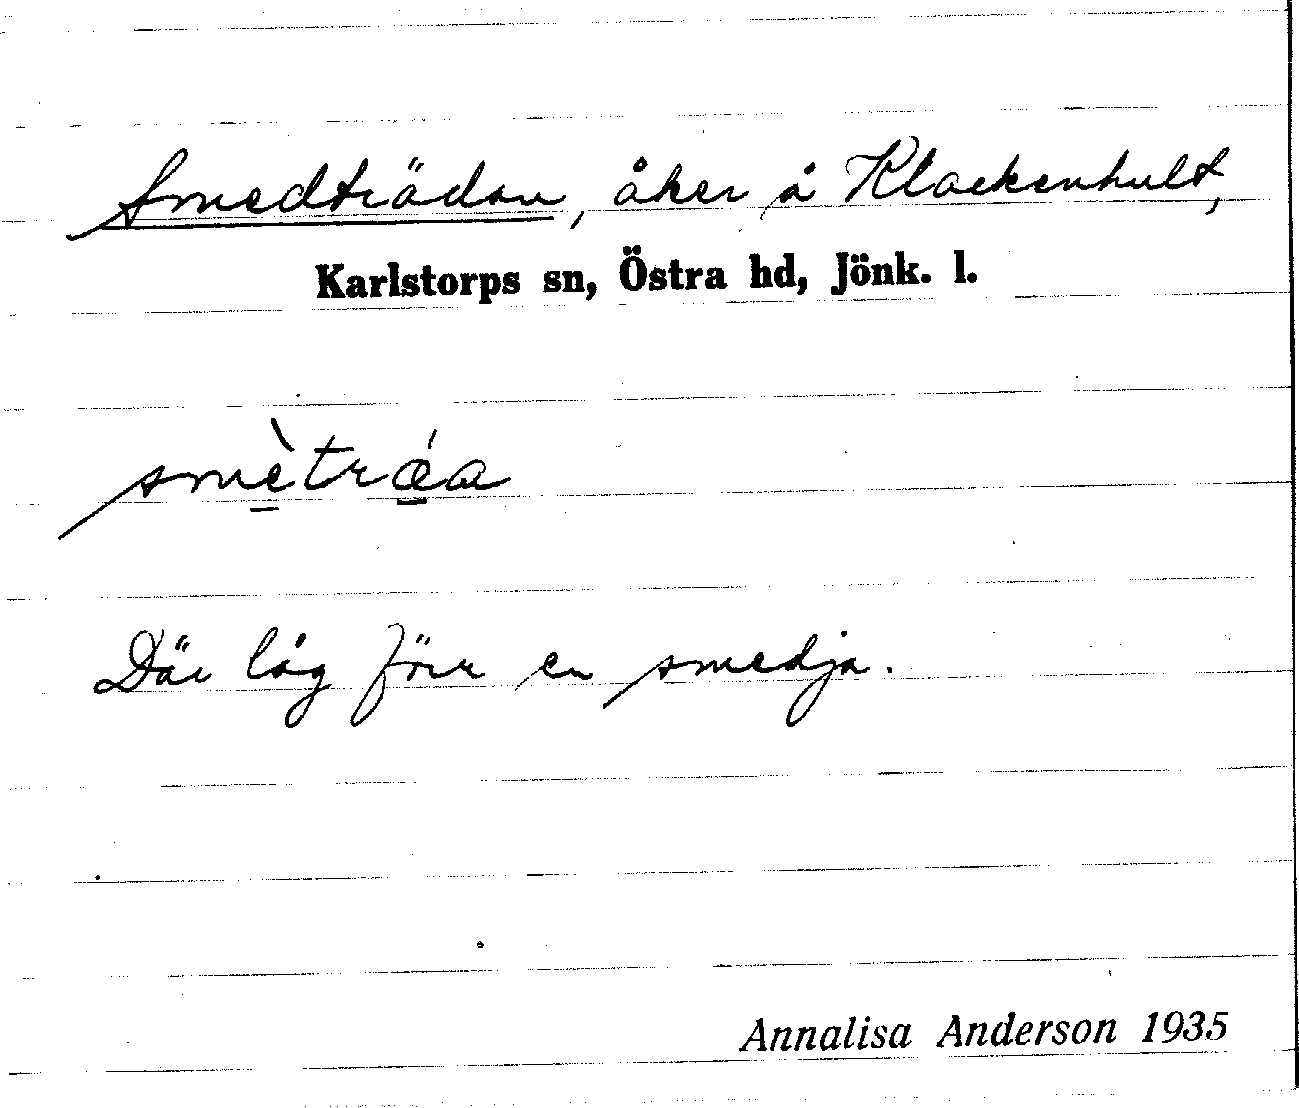 Smedträdan, åker å Klackenhult,
Karlstorps sn, Östra hd, Jönk. l.
smètrǽa
Där låg förr en smedja.
Annalisa Anderson 1935